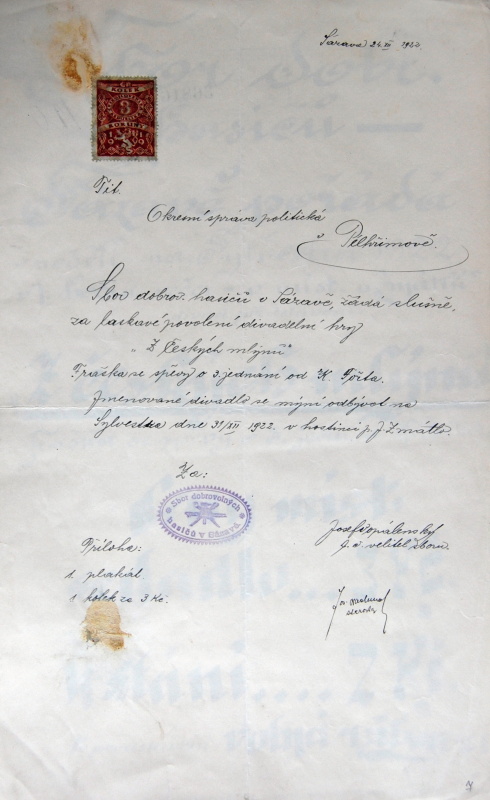 Sázava 24./XII 1922.
KOLEK
3
KORUNY
1919
Tit.
Okresní správa politická
v Pelhřimově.
Sbor dobrov. hasičů v Sázavě, žádá slušně,
za laskavé povolení divadelní hry
„Z Českých mlýnů“
Fraška se zpěvy o 3. jednání od K.
Jmenované divadlo se míní odbývot na
Sylvestra dne 31/XII 1922. v hostinci p. J. Zmátlo.
Za:
Sbor dobrovolných
hasičů v
Josef
velitel sboru.
Příloha:
1. plakát
1 kolek za 3 Kč.
Jos.
starosta
7